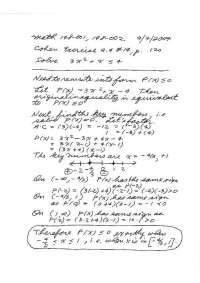 Math 102-001, 102-002 9/9/2009
Cohen Exercise 2.4 #14, p. 120
Solve 3x²+x ≤ 4
Need to rewrite into form P(x) ≤ 0
Let P(x) = 3x²+x-4. Then
original inequality is equivalent
to P(x) ≤ 0
Next, find the key numbers, i.e.
solve P(x)=0. Let's factor.
A·C = (3)(-4) = -12
P(x) = 3x²-3x+4x-4
= 3x(x-1)+4(x-1)
= (3x+4)(x-1)
The key numbers are x = -4/3, 1
On (-∞,-4/3) P(x) has the same sign
as P(-2)
P(-2) =
On (-4/3, 1) P(x) has same sign
as P(0) = (0+4)(0-1) = -4 < 0
On (1,∞) P(x) has same sign as
P(2) = (3·2+4)(2-1) = 10·1 > 0
Therefore P(x) ≤ 0 exactly when
-4/3 ≤ x ≤ 1, i.e. when x is in [-4/3, 1]